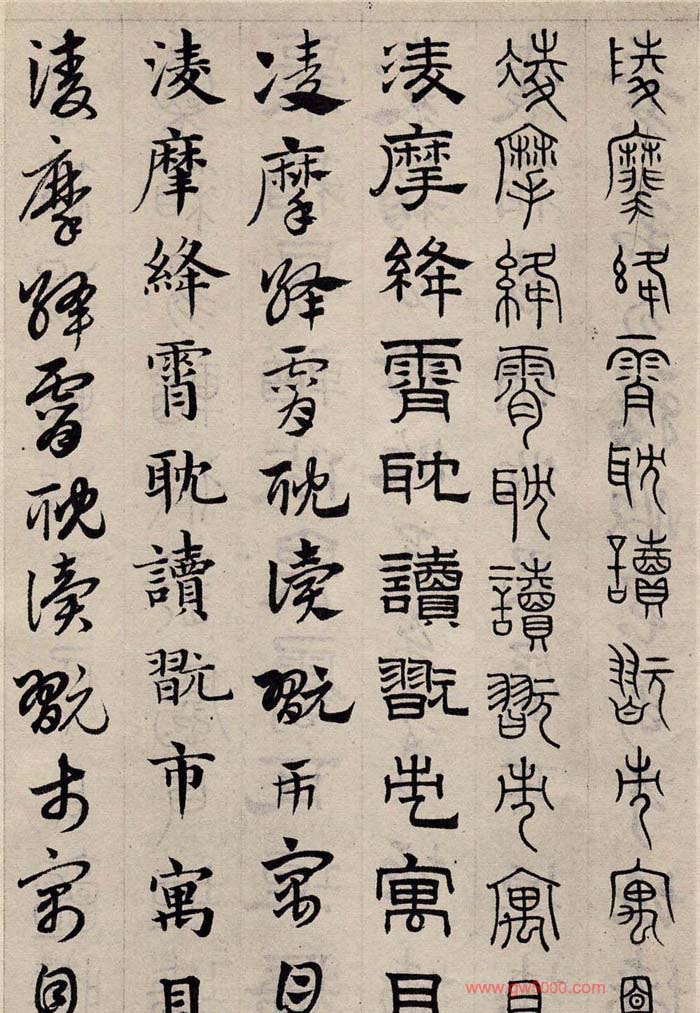 淩摩絳霄耽讀翫市寓目
淩摩絳霄耽讀翫市寓目
淩摩絳霄耽讀翫市寓目
凌摩絳霄耽讀翫市寓目
淩摩絳霄耽讀翫市寓目
淩摩絳霄耽讀翫市寓目
www.gw5000.com